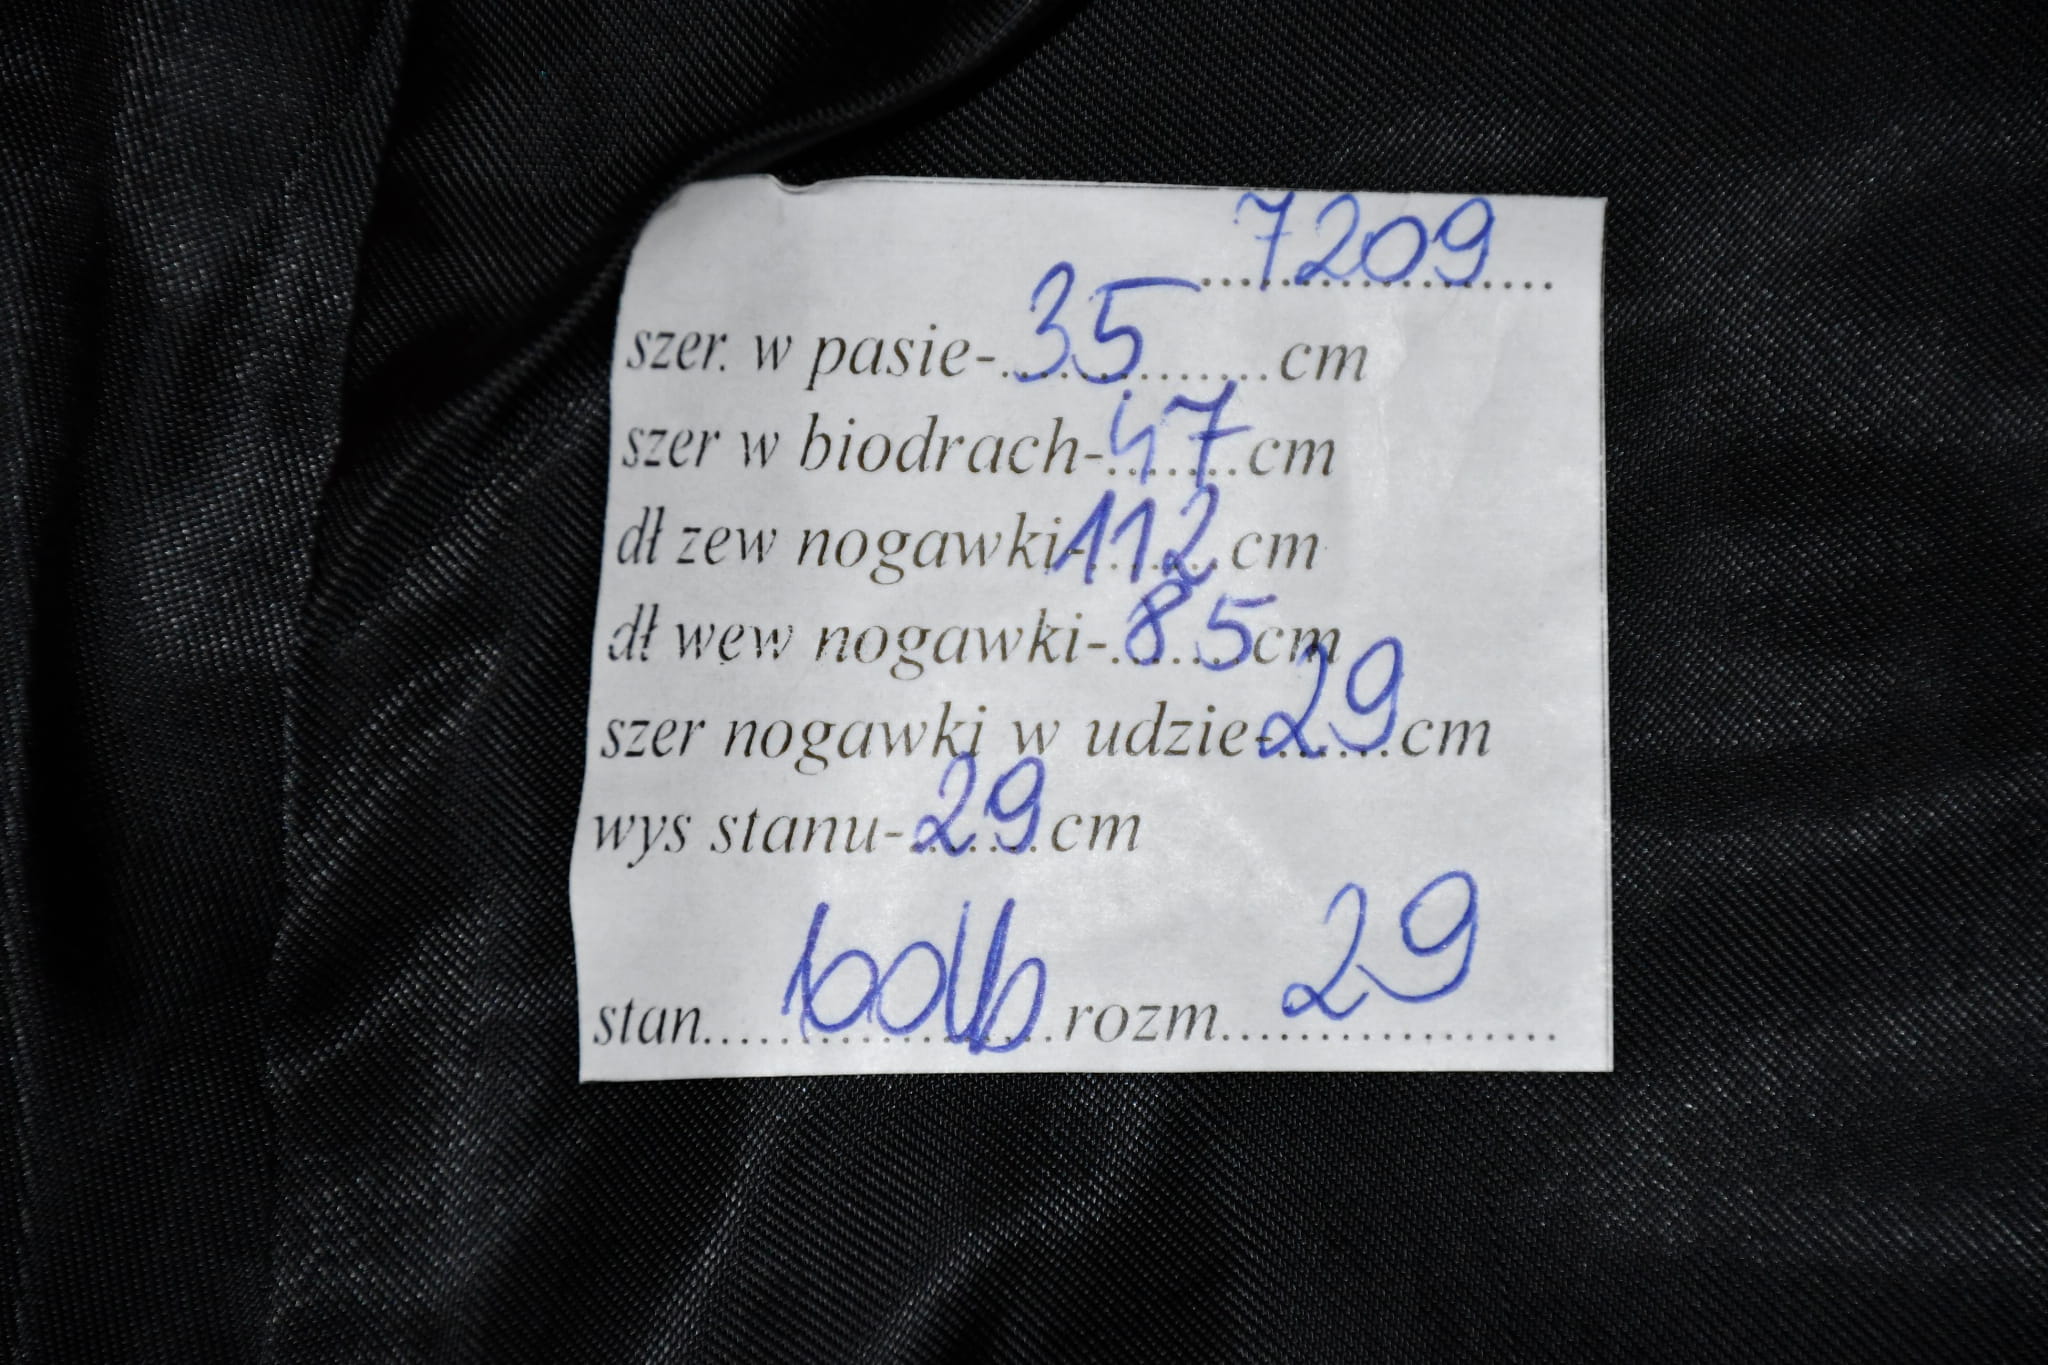 7209
szer. w pasie-35 cm
szer w biodrach-47 cm
dł zew nogawki-112 cm
dł wew nogawki-85 cm
szer nogawki w udzie-29 cm
wys stanu-29 cm
stan rozm 29